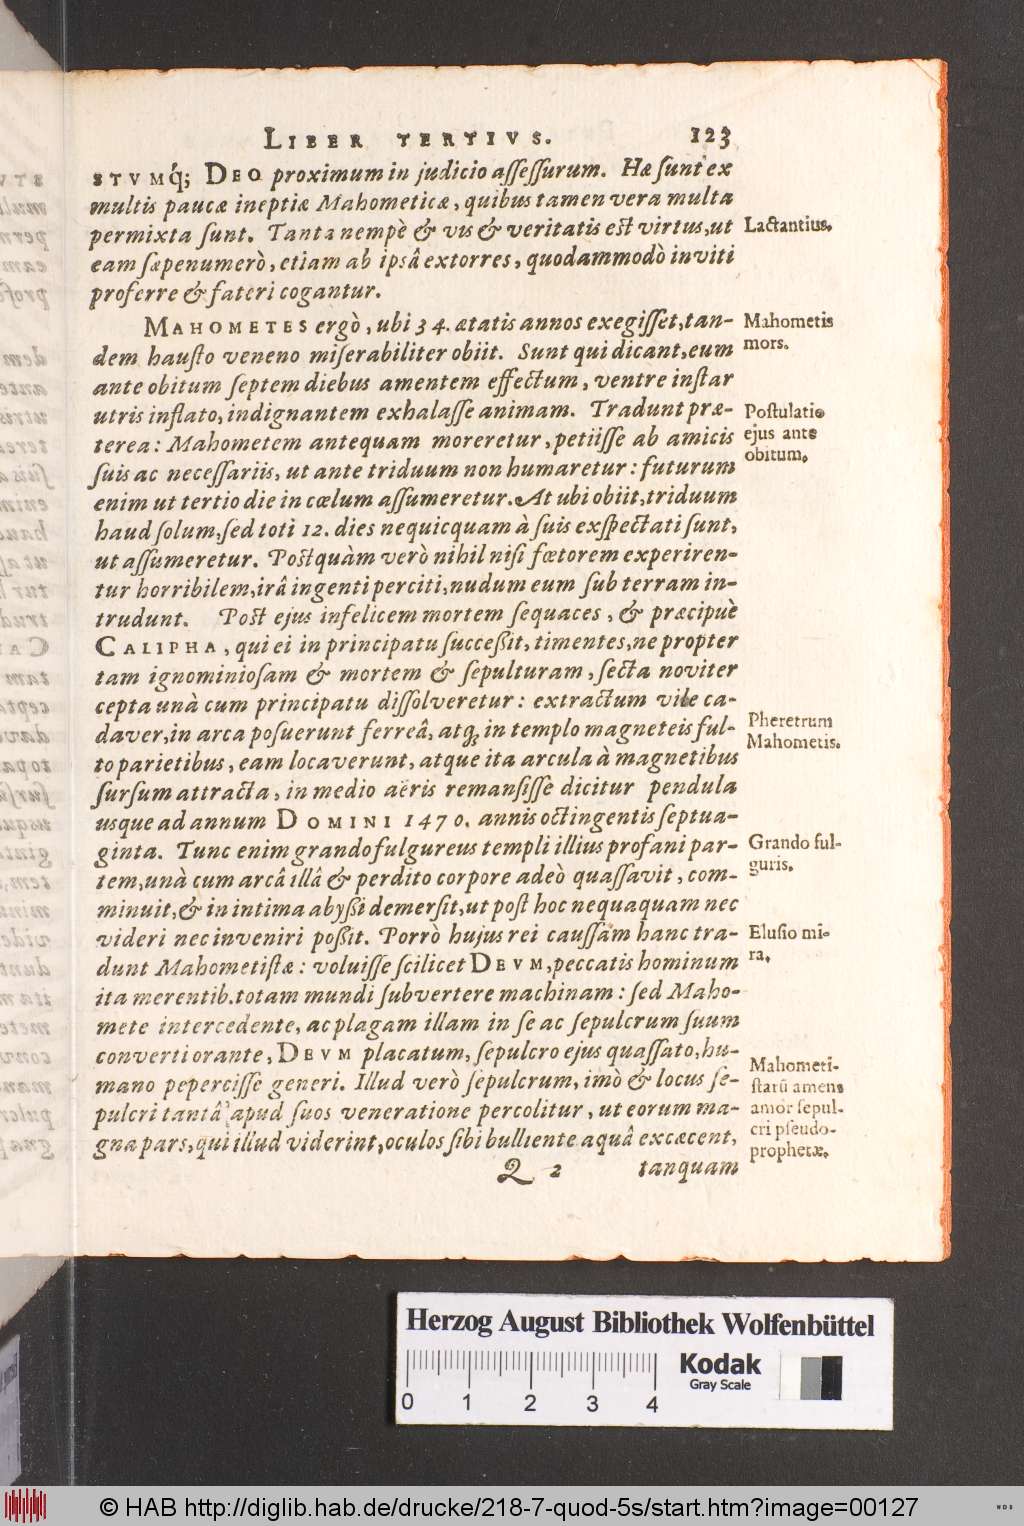 LIBER TERTIVS. 123
STVMq́; DEO proximum in judicio assessurum. Hæ sunt ex
multis paucæ ineptiæ Mahometicæ, quibus tamen vera multa
permixta sunt. Tanta nempè & vis & veritatis est virtus, ut
Lactantius.
eam sæpenumerò, etiam ab ipsâ extorres, quodammodò inviti
proferre & fateri cogantur.
MAHOMETES ergò, ubi 34. ætatis annos exegisset, tan-
Mahometis
dem hausto veneno miserabiliter obiit. Sunt qui dicant, eum
mors.
ante obitum septem diebus amentem effectum, ventre instar
utris inflato, indignantem exhalasse animam. Tradunt præ-
Postulatio
terea: Mahometem antequam moreretur, petiisse ab amicis
ejus ante
suis ac necessariis, ut ante triduum non humaretur: futurum
obitum.
enim ut tertio die in cœlum assumeretur. At ubi obiit, triduum
haud solum, sed toti 12. dies nequicquam à suis exspectati sunt,
ut assumeretur. Postquàm verò nihil nisi fœtorem experiren-
tur horribilem, irâ ingenti perciti, nudum eum sub terram in-
trudunt. Post ejus infelicem mortem sequaces, & præcipuè
CALIPHA, qui ei in principatu successit, timentes, ne propter
tam ignominiosam & mortem & sepulturam, secta noviter
cepta unà cum principatu dissolveretur: extractum vile ca-
daver, in arca posuerunt ferreâ, atq; in templo magneteis ful-
Pheretrum
Mahometis.
to parietibus, eam locaverunt, atque ita arcula à magnetibus
sursum attracta, in medio aëris remansisse dicitur pendula
usque ad annum DOMINI 1470. annis octingentis septua-
ginta. Tunc enim grando fulgureus templi illius profani par-
Grando ful-
guris.
tem, unà cum arcâ illâ & perdito corpore adeò quassavit, com-
minuit, & in intima abyßi demersit, ut post hoc nequaquam nec
videri nec inveniri poßit. Porrò hujus rei caussam hanc tra-
Elusio mi-
ra.
dunt Mahometistæ: voluisse scilicet DEVM, peccatis hominum
ita merentib. totam mundi subvertere machinam: sed Maho-
mete intercedente, ac plagam illam in se ac sepulcrum suum
converti orante, DEVM placatum, sepulcro ejus quassato, hu-
Mahometi-
mano pepercisse generi. Illud verò sepulcrum, imò & locus se-
starū amens
pulcri tantâ apud suos veneratione percolitur, ut eorum ma-
amor sepul-
cri pseudo-
gna pars, qui illud viderint, oculos sibi bulliente aquâ excæcent,
prophetæ.
Q 2 tanquam
Herzog August Bibliothek Wolfenbüttel
Kodak
Gray Scale
0 1 2 3 4
© HAB http://diglib.hab.de/drucke/218-7-quod-5s/start.htm?image=00127